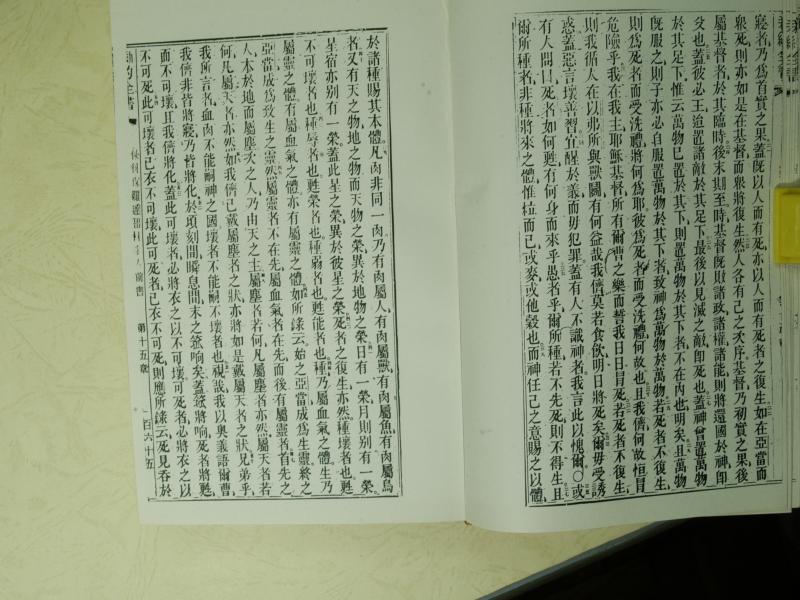 寢者乃為首實之果蓋旣以人而有死亦以人而有死者之復生如在亞當而
衆死則亦如是在基督而衆將復生然人各有己之次序基督乃初實之果後
屬基督者於其臨時後末期至時基督旣敗諸政諸權諸能則將還國於神卽
父也蓋彼必王迨置諸敵於其足下最後以見滅之敵卽死也蓋神曾置萬物
於其足下惟云萬物已置於其下則置萬物於其下者不在內也明矣且萬物
旣服之則子亦必自服置萬物於其下者致神為萬物於萬物若死者不復生
則為死者而受洗禮將何為耶彼為死者而受洗禮何故也且我儕何故恒冒
危險乎我在我主耶穌基督所有爾曹之樂而誓我日日冒死若死者不復生
則我循人在以弗所與獸鬬有何益哉我儕莫若食飲明日將死矣爾毋受誘
惑蓋惡言壞善習宜醒於義而毋犯罪蓋有人不識神者我言此以愧爾〇或
有人問曰死者如何甦有何身而來乎愚者乎爾所種若不先死則不得生且
爾所種者非種將來之體惟粒而已或麥或他穀也而神任己之意賜之以體
於諸種賜其本體凡肉非同一肉乃有肉屬人有肉屬獸有肉屬魚有肉屬鳥
者又有天之物地之物而天物之榮異於地物之榮日有一榮月則别有一榮
星宿亦别有一榮蓋此星之榮異於彼星之榮死者之復生亦然種壞者也甦
不可壞者也種辱者也甦榮者也種弱者也甦能者也種乃屬血氣之體生乃
屬靈之體有屬血氣之體亦有屬靈之體如所錄云始之亞當成為生靈終之
亞當成為致生之靈然屬靈者不在先屬血氣者在先而後有屬靈者首先之
人本於地而屬塵次之人乃由天之主屬塵者若何凡屬塵者亦然屬天者若
何凡屬天者亦然如我儕已戴屬塵者之狀亦將如是戴屬天者之狀兄弟乎
我所言者血肉不能嗣神之國壞者不能嗣不壞者也視哉我以奧義語爾曹
我儕非皆將寢乃皆將化於頃刻間瞬息間末之箛响矣蓋箛將响死者將甦
而不可壞且我儕將化蓋此可壞者必將衣之以不可壞可死者必將衣之以
不可死此可壞者已衣不可壞此可死者已衣不可死則應所錄云死見吞於
第十五章
一百六十五